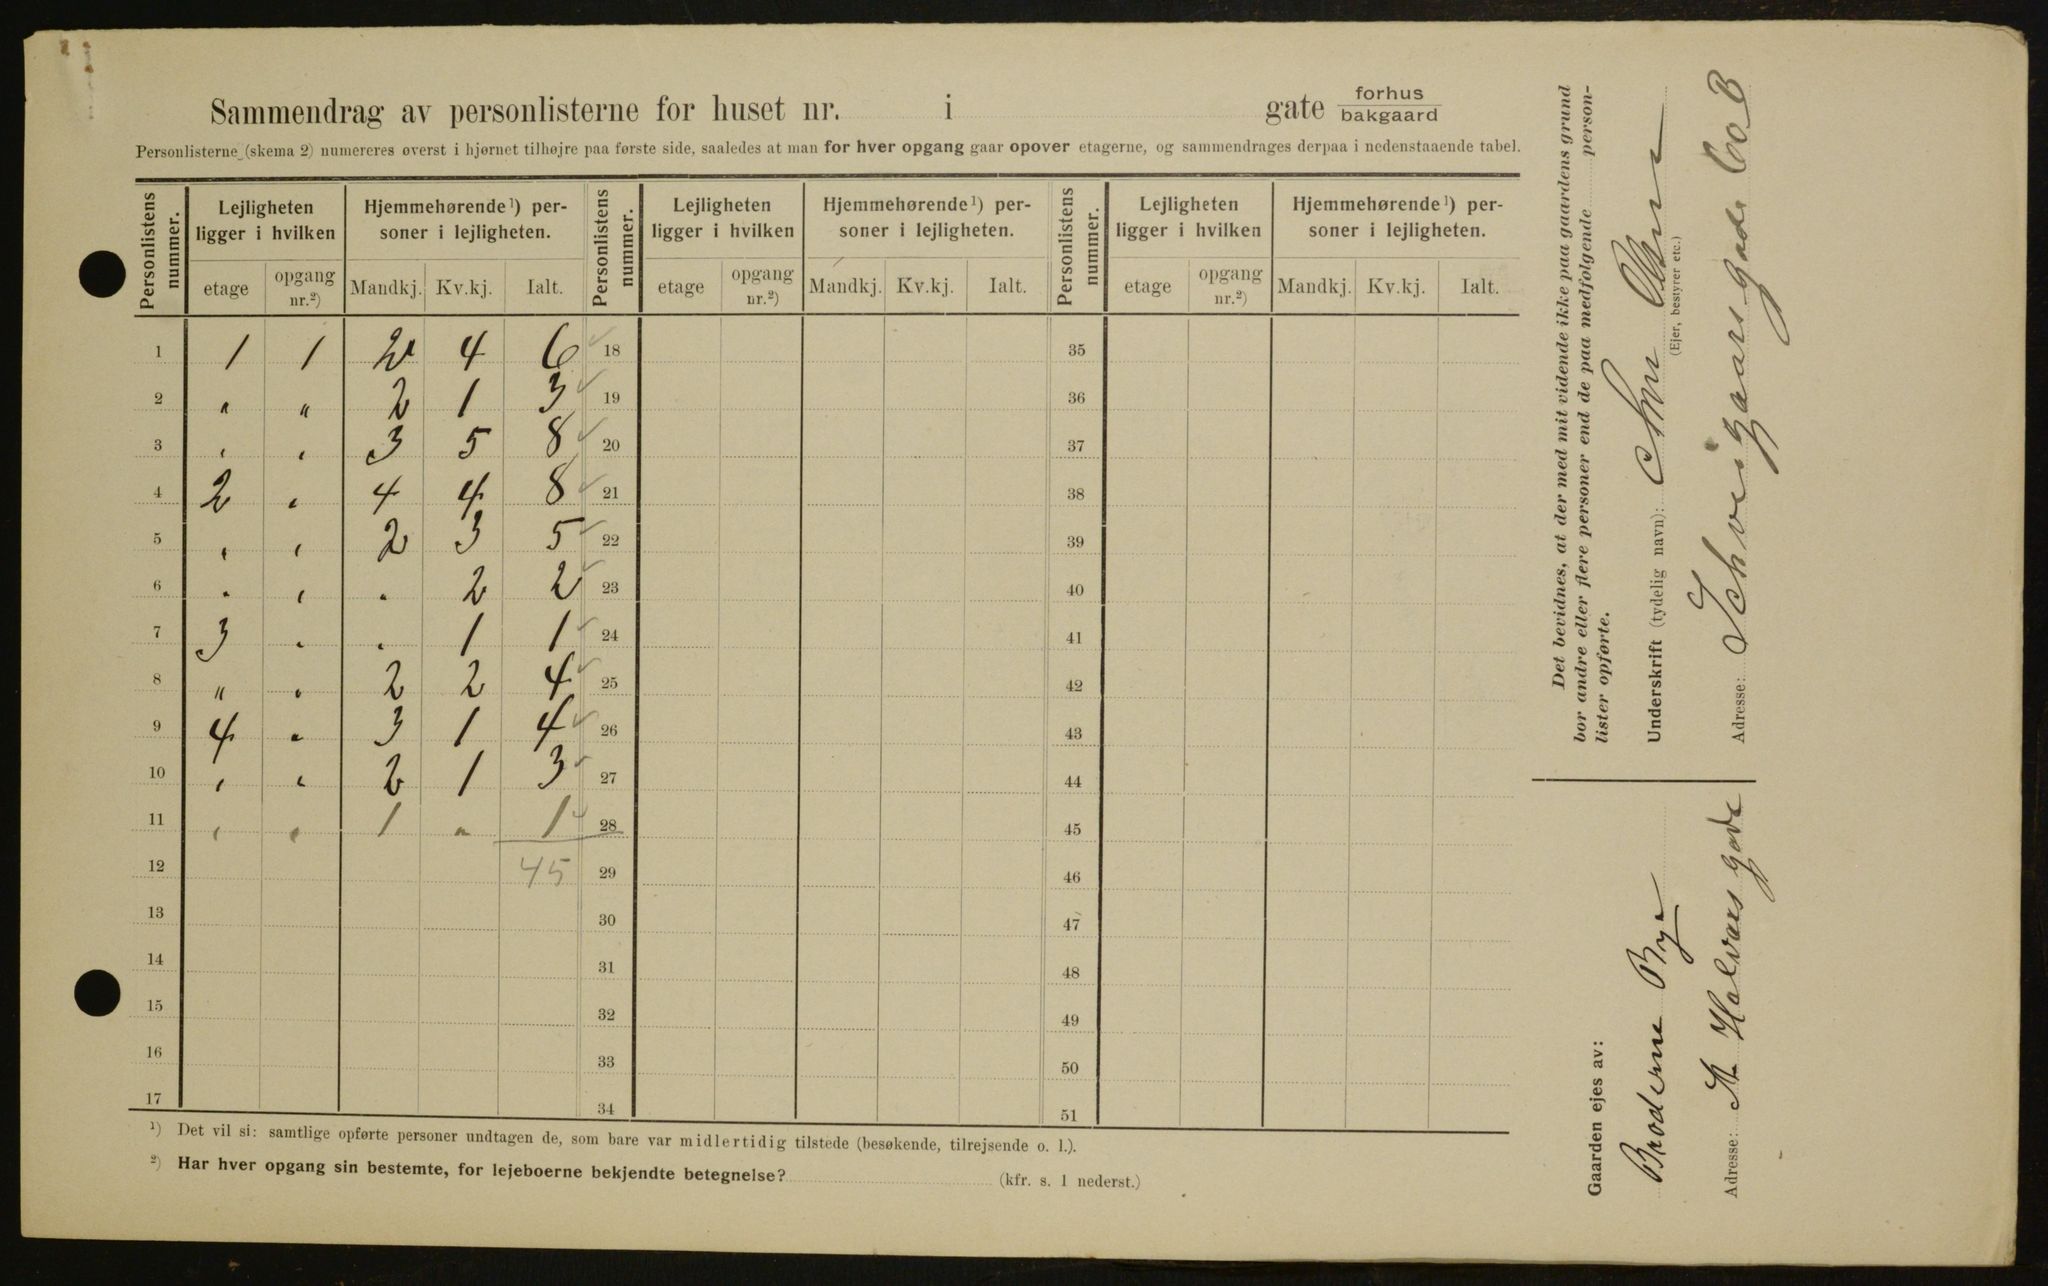 Sammendrag av personlisterne for huset nr. i gate forhus
bakgaard
Personlisterne (skema 2) numereres øverst i hjørnet tilhøjre paa første side, saaledes at man for hver opgang gaar opover etagerne, og sammendrages derpaa i nedenstaaende tabel.
Personlistens nummer. Lejligheten ligger i hvilken Hjemmehørende ¹) personer i lejligheten. Personlistens nummer. Lejligheten ligger i hvilken Hjemmehørende ¹) personer i lejligheten. Personlistens nummer. Lejligheten ligger i hvilken Hjemmehørende ¹) personer i lejligheten.
etage opgang nr.²) Mandkj. Kv.kj. Ialt. etage opgang nr.²) Mandkj. Kv.kj. Ialt. etage opgang nr.²) Mandkj. Kv.kj. Ialt.
1 1 1 2 4 6 18 35
2 " " 2 1 3 19 36
3 " " 3 5 8 20 37
4 2 " 4 4 8 21 38
5 " " 2 3 5 22 39
6 " " " 2 2 23 40
7 3 " " 1 1 24 41
8 " " 2 2 4 25 42
9 4 " 3 1 4 26 43
10 " " 2 1 3 27 44
11 " " 1 " 1 28 45
12 45 29 46
13 30 47
14 31 48
15 32 49
16 33 50
17 34 51
¹) Det vil si: samtlige opførte personer undtagen de, som bare var midlertidig tilstede (besøkende, tilrejsende o. l.).
²) Har hver opgang sin bestemte, for lejeboerne bekjendte betegnelse? (kfr. s. 1 nederst.)
Det bevidnes, at der med mit vidende ikke paa gaardens grund
bor andre eller flere personer end de paa medfølgende personlister opførte.
Underskrift (tydelig navn):
(Ejer, bestyrer etc.)
Adresse: Schveigaardsgade 60 B
Gaarden ejes av:
Brøderne Bye
Adresse: St Halvards gade